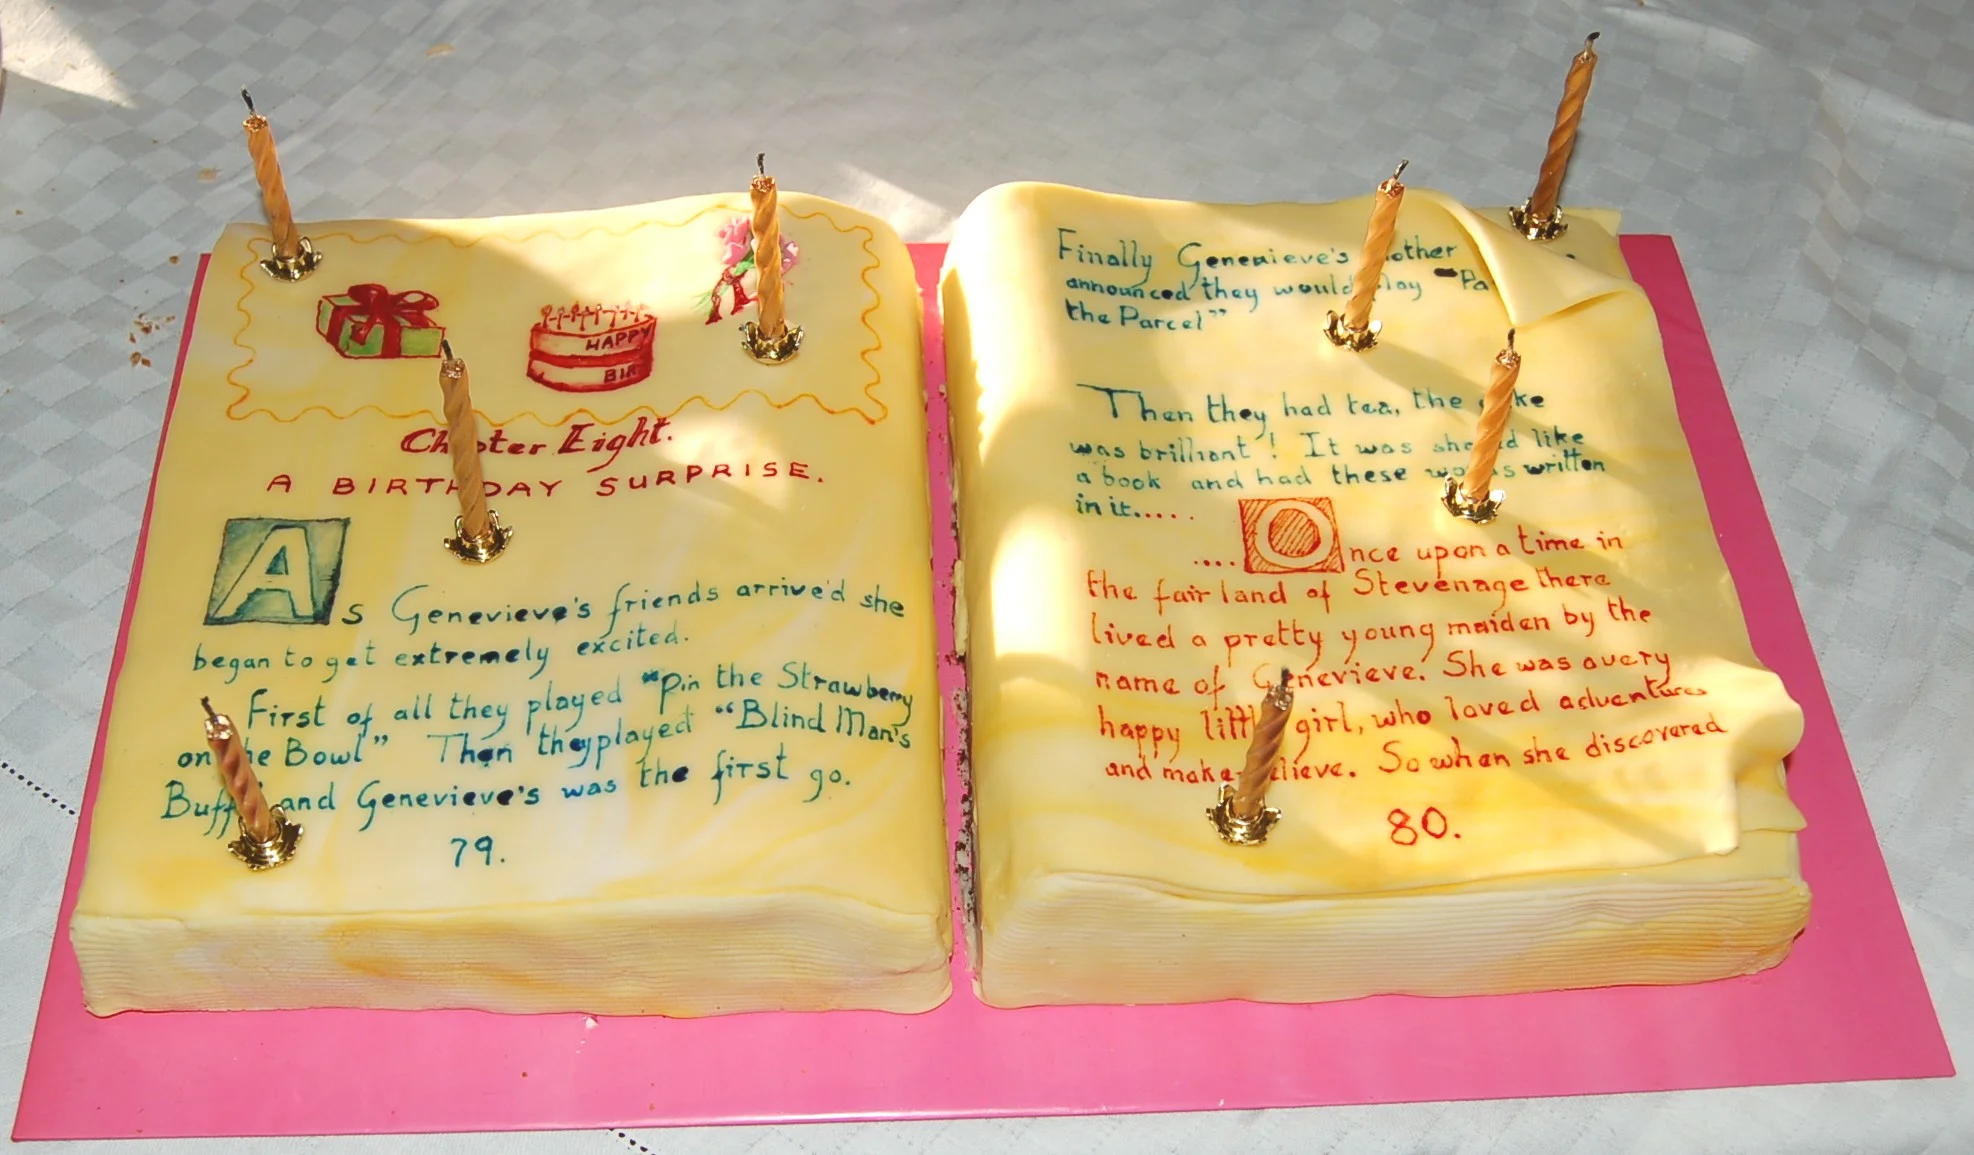 HAPPY
BIR
Chapter Eight.
A BIRTHDAY SURPRISE.
As Genevieve's friends arrive'd she
began to get extremely excited.
First of all they played "Pin the Strawberry
on the Bowl" Then they played "Blind Man's
Buff" and Genevieve's was the first go.
79.
Finally Genevieve's Mother
announced they would play "Pa
the Parcel"
Then they had tea, the cake
was brilliant! It was shaped like
a book and had these words written
in it.....
....Once upon a time in
the fair land of Stevenage there
lived a pretty young maiden by the
name of Genevieve. She was a very
happy little girl, who loved adventures
and make-believe. So when she discovered
80.